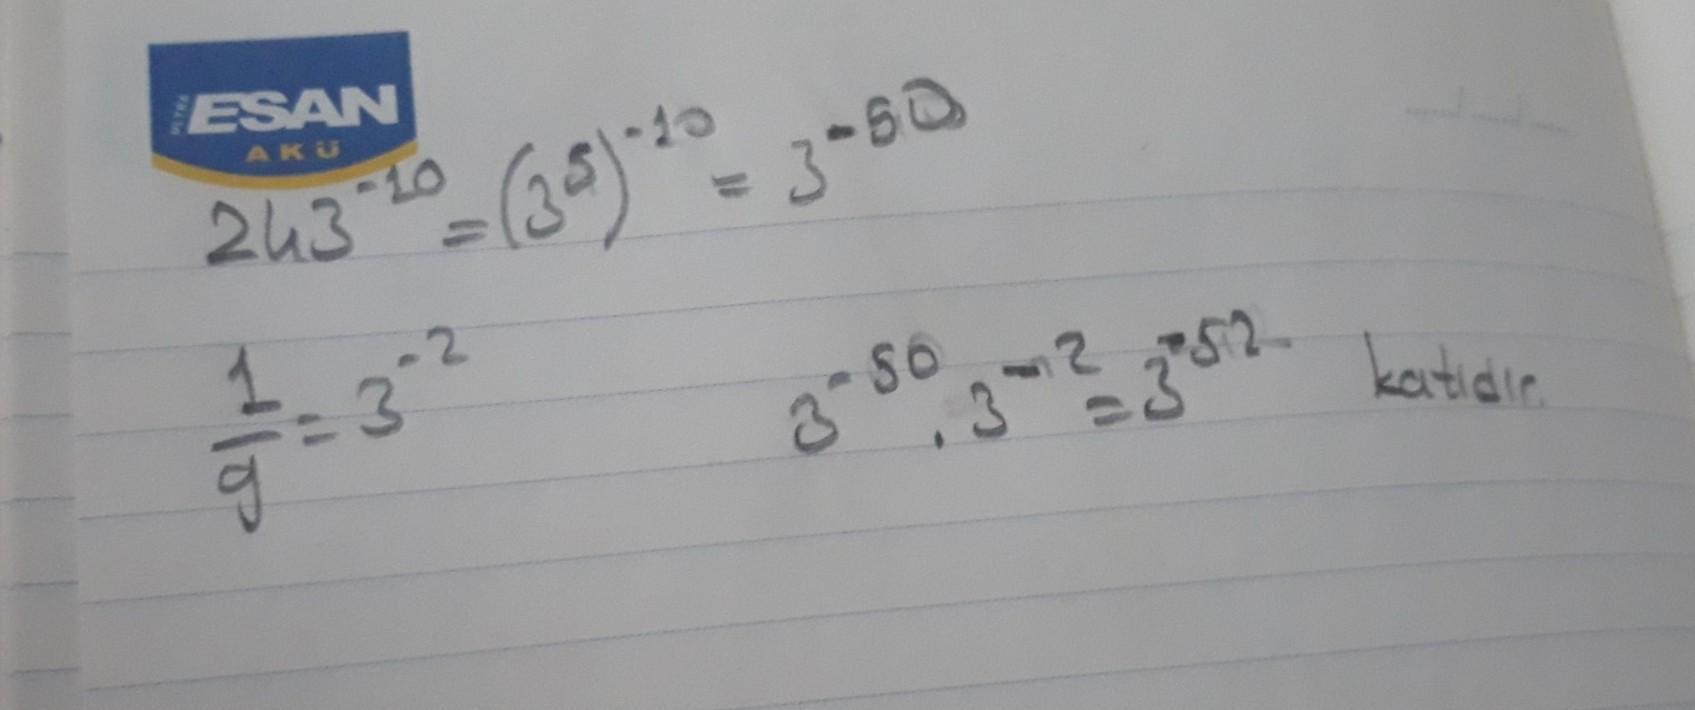 ULTRA ESAN
AKÜ
243⁻¹⁰ = (3⁵)⁻¹⁰ = 3⁻⁵⁰
1/9 = 3⁻² 3⁻⁵⁰ . 3⁻² = 3⁻⁵² katıdır.